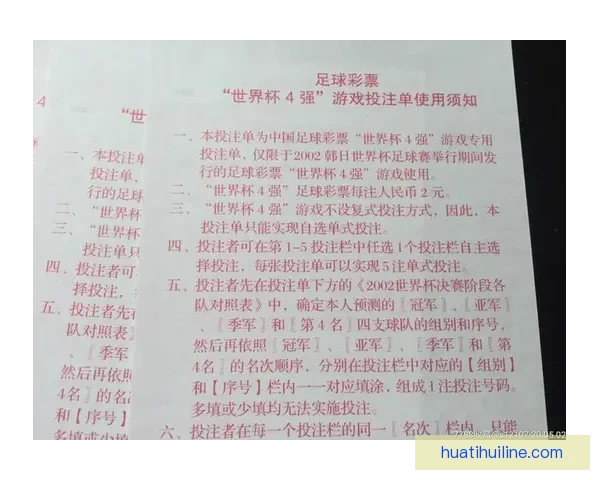 足球彩票
“世界杯 4 强”游戏投注单使用须知
一、本投注单为中国足球彩票“世界杯 4 强”游戏专用
投注单，仅限于2002 韩日世界杯足球赛举行期间发
行的足球彩票“世界杯 4 强”游戏使用。
二、“世界杯 4 强”足球彩票每注人民币 2 元。
三、“世界杯 4 强”游戏不设复式投注方式，因此，本
投注单只能实现自选单式投注。
四、投注者可在第 1–5 投注栏中任选 1个投注栏自主选
择投注，每张投注单可以实现 5 注单式投注。
五、投注者先在投注单下方的《2002世界杯决赛阶段各
队对照表》中，确定本人预测的〖冠军〗、〖亚军〗
、〖季军〗和〖第 4 名〗四支球队的组别和序号，
然后再依照〖冠军〗、〖亚军〗、〖季军〗和〖第
4名〗的名次顺序，分别在投注栏中对应的【组别】
和【序号】栏内一一对应填涂，组成 1 注投注号码。
多填或少填均无法实施投注。
六、投注者在每一个投注栏的同一〖名次〗栏内，只能
4
“世
一、本投注单
投注单，
行的足球
二、“世界杯
三、“世界杯
投注单只
四、投注者可
择投注，
五、投注者先在
队对照表》
、〖季军
然后再依照
4名〗的名次
和【序号】
多填或少填
huatihuiline.com